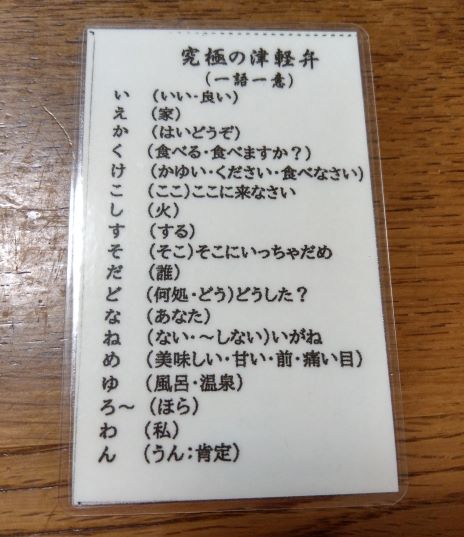 究極の津軽弁
(一語一意)
い (いい・良い)
え (家)
か (はいどうぞ)
く (食べる・食べますか？)
け (かゆい・ください・食べなさい)
こ (ここ)ここに来なさい
し (火)
す (する)
そ (そこ)そこにいっちゃだめ
だ (誰)
ど (何処・どう)どうした？
な (あなた)
ね (ない・～しない)いがね
め (美味しい・甘い・前・痛い目)
ゆ (風呂・温泉)
ろ～ (ほら)
わ (私)
ん (うん；肯定)